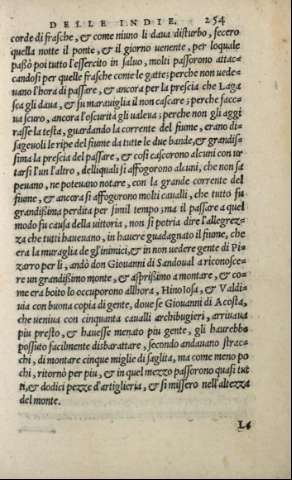 DELLE INDIE. 254
corde di frasche, & come niuno li daua disturbo, fecero
quella notte il ponte, & il giorno uenente, per loquale
passò poi tutto l'essercito in saluo, molti passorono attac-
candosi per quelle frasche come le gatte; perche non uede-
uano l'hora di passare, & ancora per la prescia che Laga
sca gli daua, & fu marauiglia il non cascare; perche face-
ua scuro, ancora l'oscurità gli ualeua; perche non gli aggi
rasse la testa, guardando la corrente del fiume, erano di-
sageuoli le ripe del fiume da tutte le due bande, & grandis-
sima la prescia del passare, & così cascorono alcuni con ur
tarsi l'un l'altro, delliquali si affogorono alcuni, che non sa
peuano, ne poteuano notare, con la grande corrente del
fiume, & ancora si affogorono molti caualli, che tutto fu
grandissima perdita per simil tempo; ma il passare a quel
modo fu causa della uittoria, non si potria dire l'allegrez-
za che tutti haueuano, in hauere guadagnato il fiume, che
era la muraglia de gl'inimici, & in non uedere gente di Pi-
zarro per li, andò don Giouanni di Sandoual a riconosce-
re un grandissimo monte, & asprissimo a montare, & co-
me era uoito lo occuporono allhora, Hinoiosa, & Valdi-
uia con buona copia di gente, doue se Giouanni di Acosta,
che ueniua con cinquanta caualli archibugieri, arriuaua
piu presto, & hauesse menato piu gente, gli haurebbe
possuto facilmente disbarattare, secondo andauano strac-
chi, di montare cinque miglie di saglita, ma come meno po
chi, ritornò per piu, & in quel mezzo passorono quasi tut
ti, & dodici pezze d'artiglieria, & si missero nell'altezza
del monte.